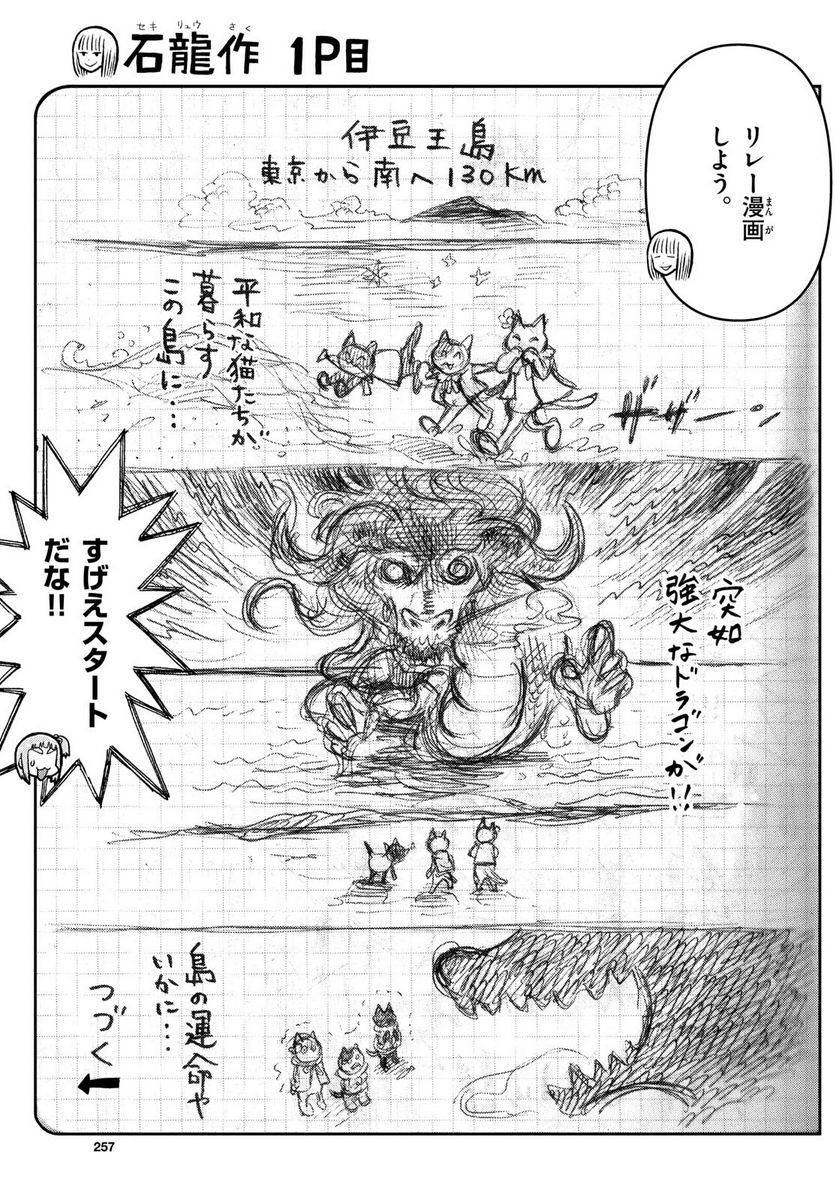 石龍作 1P目
セキ リュウ さく
リレー漫画
まんが
しよう。
伊豆王島
東京から南へ130km
平和な猫たちが
暮らす
この島に…
ザザーン
すげえスタート
だな!!
突如
強大なドラゴンが!!
島の運命や
いかに…
つづく
257